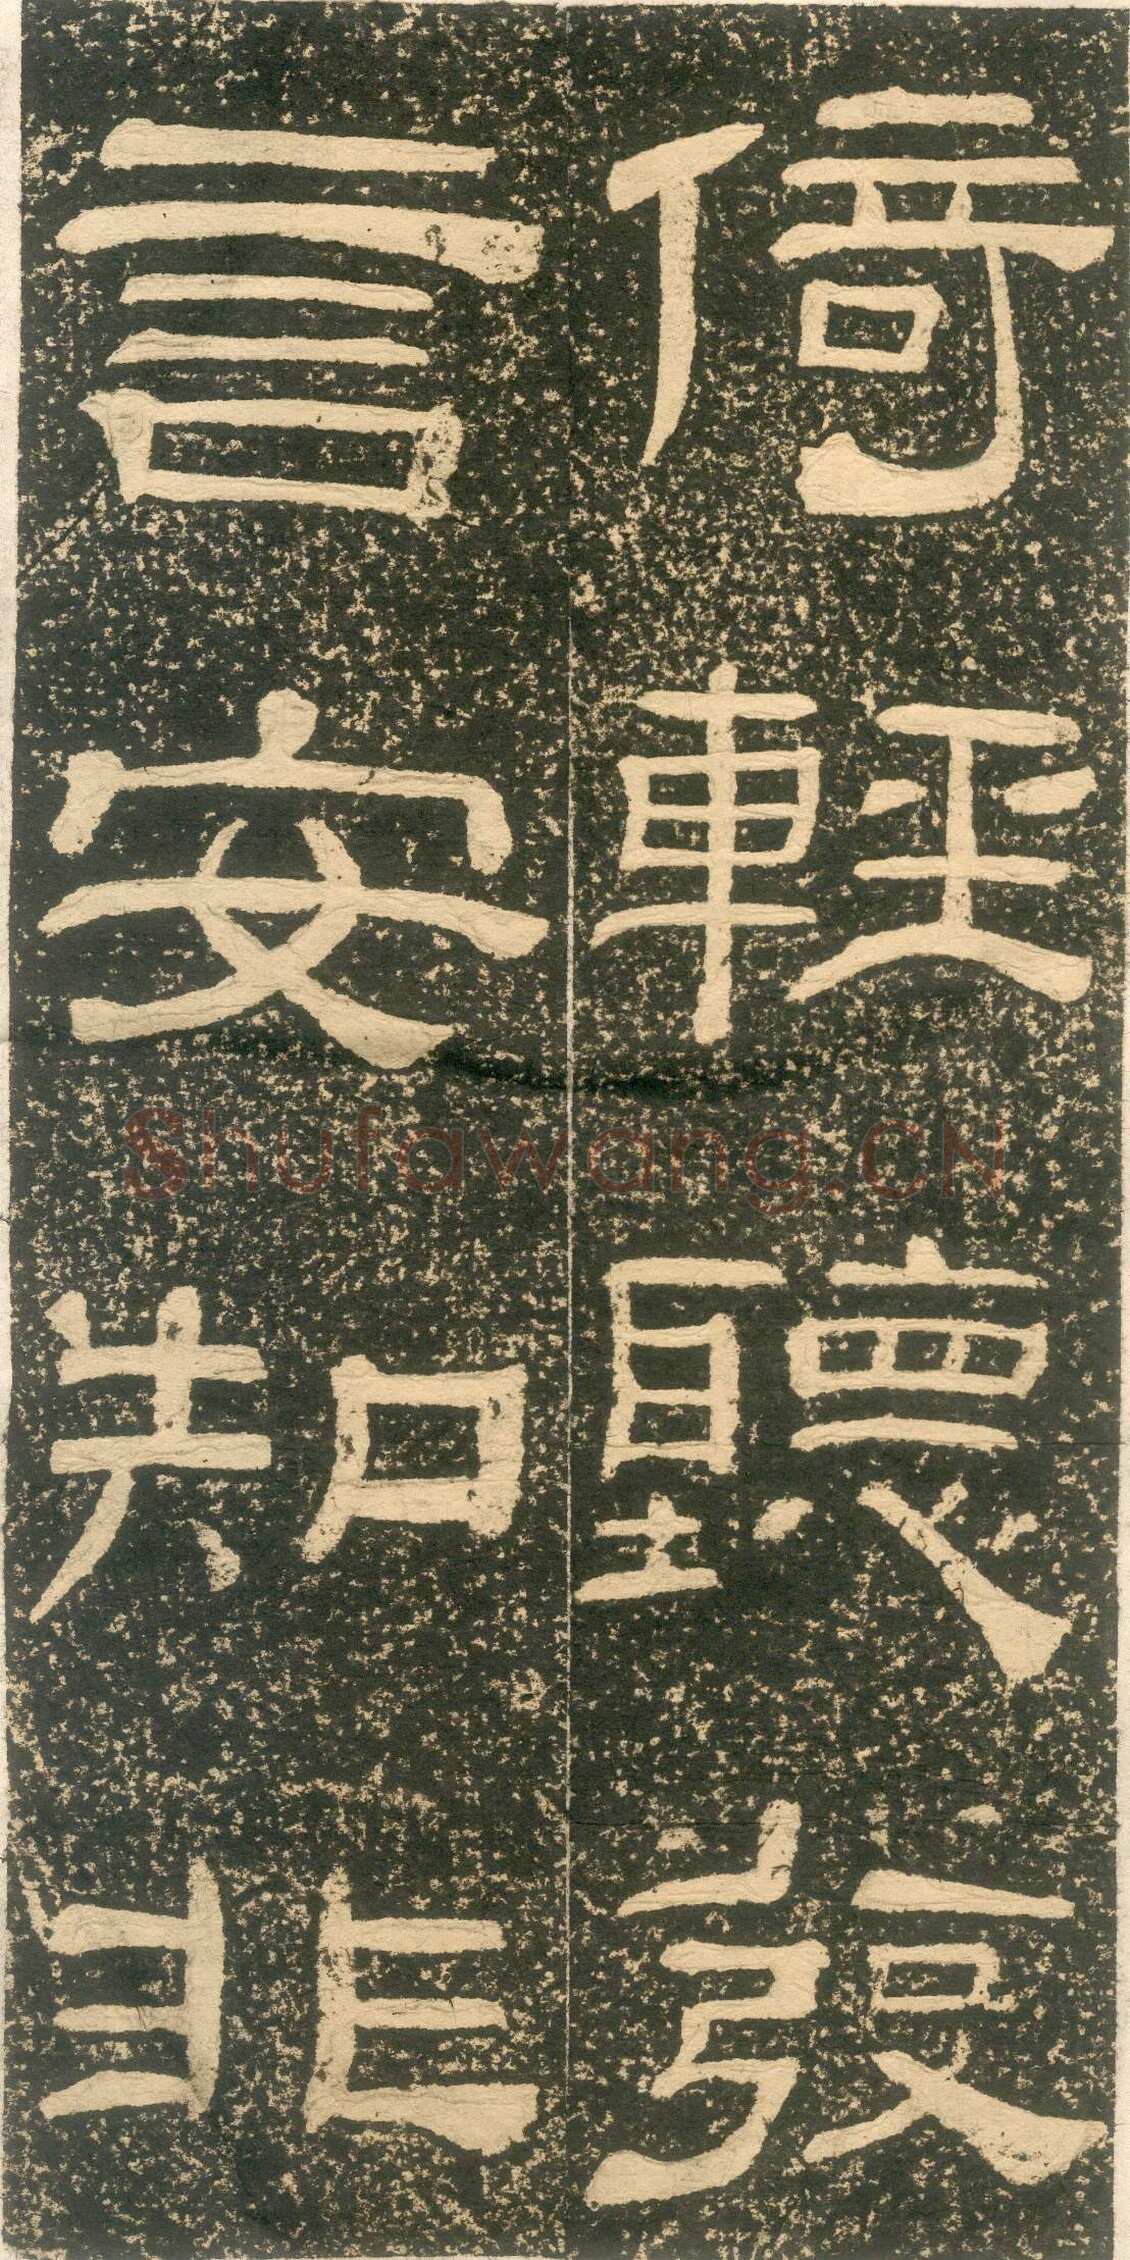 倚輕聽發
言安知非
Shufawang.CN